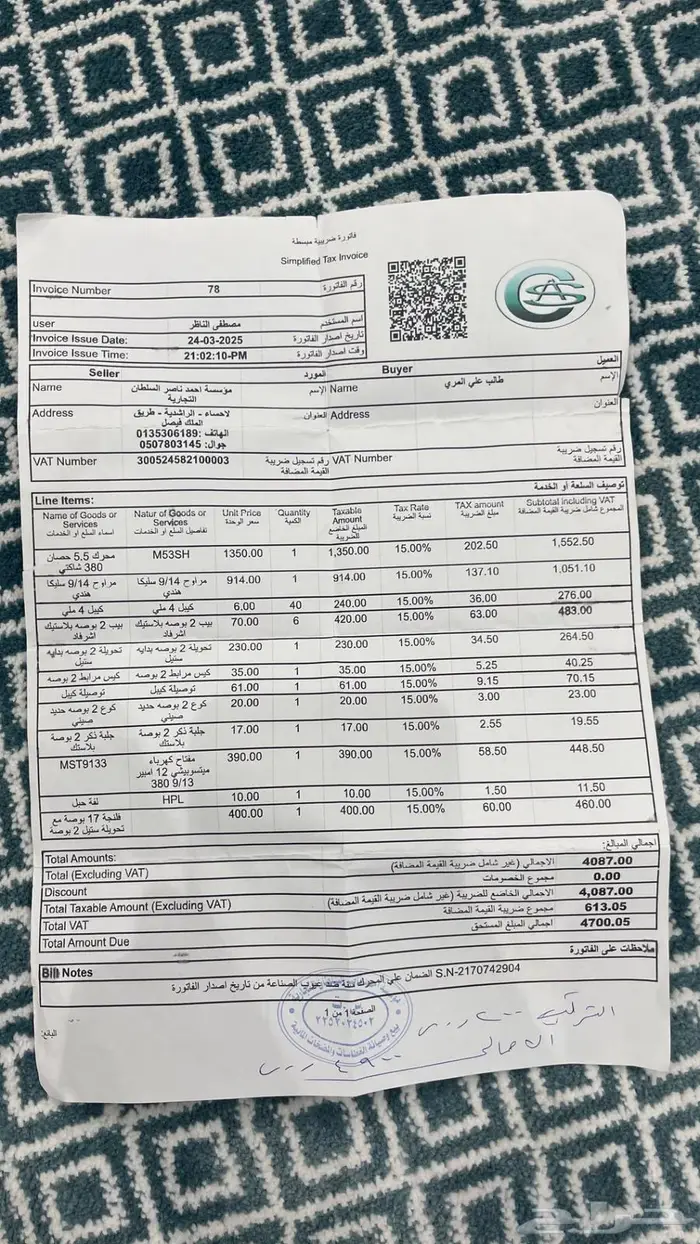 فاتورة ضريبية مبسطة
Simplified Tax Invoice
CAS
Invoice Number 78 رقم الفاتورة
user مصطفى الناظر اسم المستخدم
Invoice Issue Date: 24-03-2025 تاريخ اصدار الفاتورة
Invoice Issue Time: 21:02:10-PM وقت اصدار الفاتورة
Seller المورد Buyer العميل
Name مؤسسة احمد ناصر السلطان التجارية الإسم Name طالب علي المري الإسم
Address لاحساء - الراشدية - طريق العنوان Address العنوان
الملك فيصل
الهاتف :0135306189
جوال: 0507803145
VAT Number 300524582100003 رقم تسجيل ضريبة القيمة المضافة VAT Number رقم تسجيل ضريبة القيمة المضافة
Line Items: توصيف السلعة أو الخدمة
Name of Goods or Services Natur of Goods or Services Unit Price Quantity Taxable Amount Tax Rate TAX amount Subtotal including VAT
اسماء السلع او الخدمات تفاصيل السلع او الخدمات سعر الوحدة الكمية المبلغ الخاضع للضريبة نسبة الضريبة مبلغ الضريبة المجموع شامل ضريبة القيمة المضافة
محرك 5.5 حصان 380 شاكتي M53SH 1350.00 1 1,350.00 15.00% 202.50 1,552.50
مراوح 9/14 سليكا هندي مراوح 9/14 سليكا هندي 914.00 1 914.00 15.00% 137.10 1,051.10
كيبل 4 ملي كيبل 4 ملي 6.00 40 240.00 15.00% 36.00 276.00
بيب 2 بوصه بلاستيك اشرفاد بيب 2 بوصه بلاستيك اشرفاد 70.00 6 420.00 15.00% 63.00 483.00
تحويلة 2 بوصه بدايه ستيل تحويلة 2 بوصه بدايه ستيل 230.00 1 230.00 15.00% 34.50 264.50
كيس مرابط 2 بوصه كيس مرابط 2 بوصه 35.00 1 35.00 15.00% 5.25 40.25
توصيلة كيبل توصيلة كيبل 61.00 1 61.00 15.00% 9.15 70.15
كوع 2 بوصه حديد صيني كوع 2 بوصه حديد صيني 20.00 1 20.00 15.00% 3.00 23.00
جلبة ذكر 2 بوصة بلاستك جلبة ذكر 2 بوصة بلاستك 17.00 1 17.00 15.00% 2.55 19.55
MST9133 مفتاح كهرباء ميتسوبيشي 12 امبير 9/13 380 390.00 1 390.00 15.00% 58.50 448.50
لفة حبل HPL 10.00 1 10.00 15.00% 1.50 11.50
فلنجة 17 بوصة مع تحويلة ستيل 2 بوصة 400.00 1 400.00 15.00% 60.00 460.00
Total Amounts: اجمالي المبالغ:
Total (Excluding VAT) الاجمالي (غير شامل ضريبة القيمة المضافة) 4087.00
Discount مجموع الخصومات 0.00
Total Taxable Amount (Excluding VAT) الاجمالي الخاضع للضريبة (غير شامل ضريبة القيمة المضافة) 4,087.00
Total VAT مجموع ضريبة القيمة المضافة 613.05
Total Amount Due اجمالي المبلغ المستحق 4700.05
ملاحظات على الفاتورة
Bill Notes
S.N-2170742904 الضمان على المحرك سنة ضد عيوب الصناعة من تاريخ اصدار الفاتورة
الصفحة 1 من 1
٢٢٥٢٠٢٤٥٠٢
البائع:
التركيب ٢٠٠ ريس
الاجمالي ٤٩٠٠ ريس
حراج